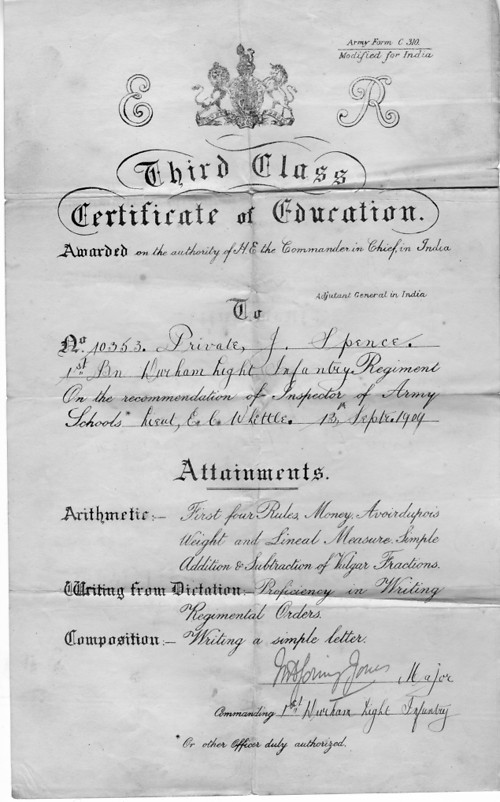 Army Form C.310.
Modified for India
E R
Third Class
Certificate of Education.
Awarded on the authority of H.E the Commander in Chief, in India
Adjutant General in India
To
No. 10353. Private, J. Spence.
1st Bn Durham Light Infantry Regiment
On the recommendation of Inspector of Army
Schools* Lieut, E. C. Whittle. 13th Septr. 1909
Attainments.
Arithmetic:— First four Rules, Money, Avoirdupois
Weight and Lineal Measure. Simple
Addition & Subtraction of Vulgar Fractions.
Writing from Dictation:— Proficiency in Writing
Regimental Orders.
Composition:— Writing a simple letter.
Jones Major
Commanding 1st Durham Light Infantry
*Or other Officer duly authorized.